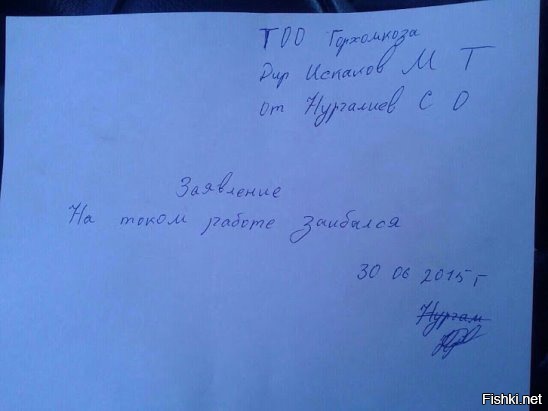 ТОО Горхомкоза
Дир Искаков М Т
от Нургалиев С О
Заявление
На током работе заибался
30 06 2015 г
Нургам
Fishki.net